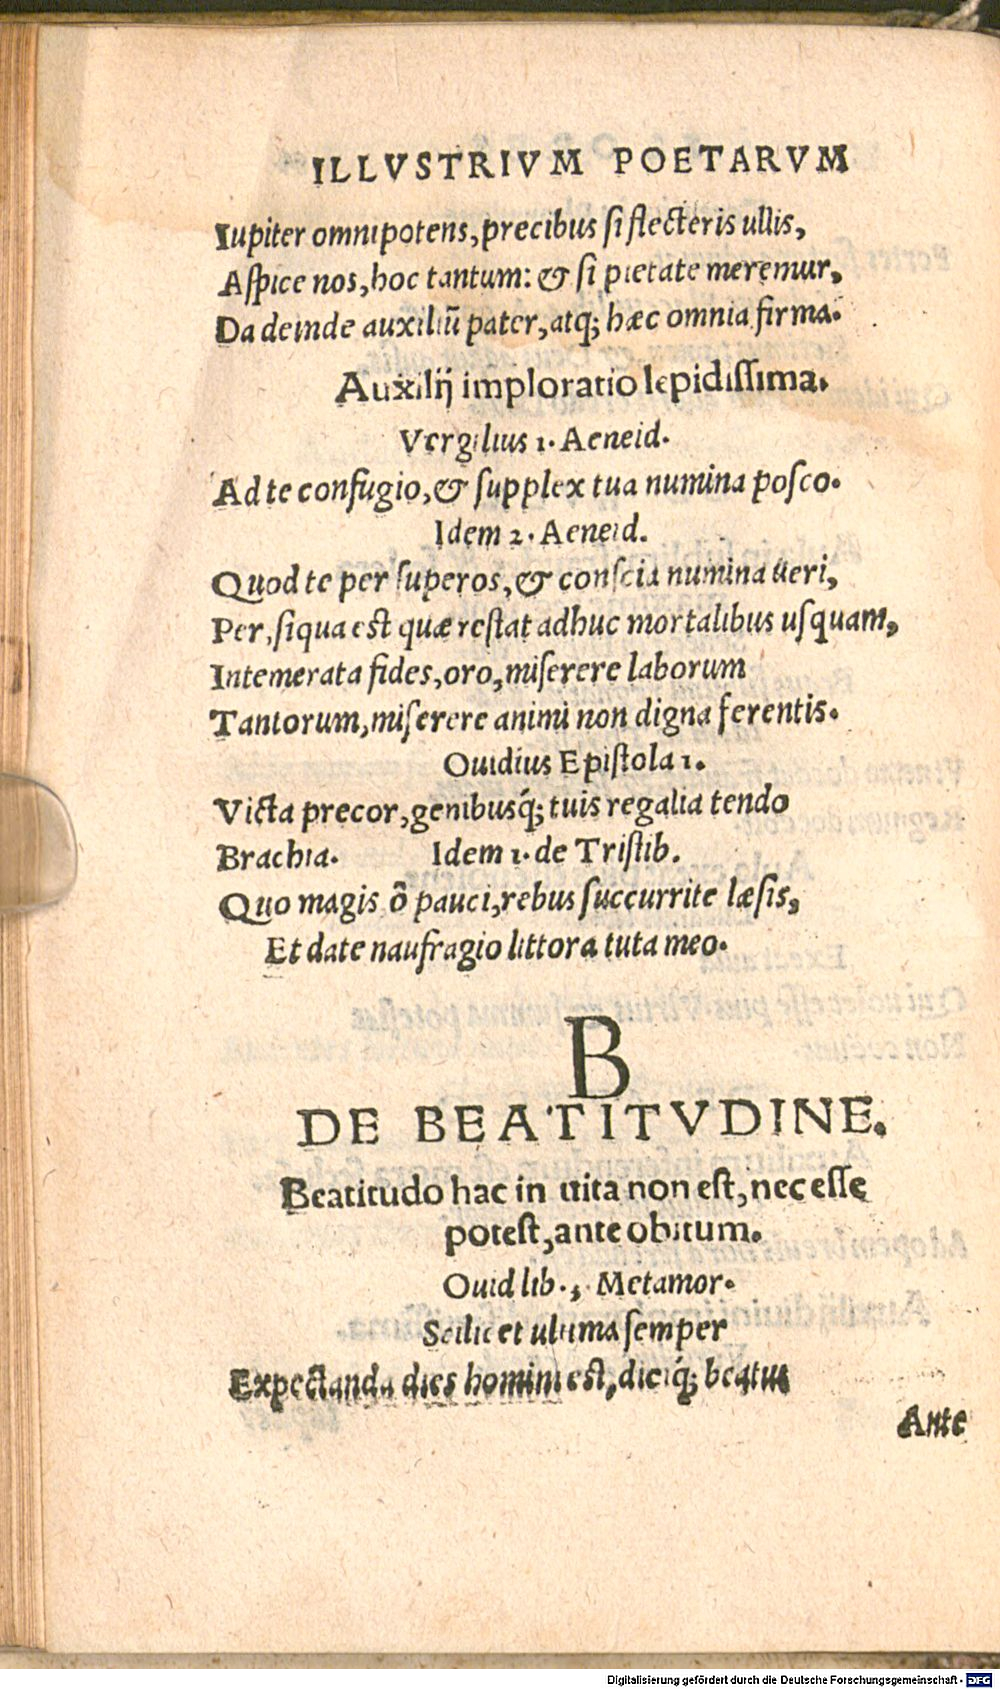 ILLVSTRIVM POETARVM
Iupiter omnipotens, precibus si flecteris ullis,
Aspice nos, hoc tantum: & si pietate meremur,
Da deinde auxiliũ pater, atq; hæc omnia firma.
Auxilij imploratio lepidissima.
Vergilius 1. Aeneid.
Ad te confugio, & supplex tua numina posco.
Idem 2. Aeneid.
Quod te per superos, & conscia numina ueri,
Per, siqua est quæ restat adhuc mortalibus usquam,
Intemerata fides, oro, miserere laborum
Tantorum, miserere animi non digna ferentis.
Ouidius Epistola 1.
Victa precor, genibusq́; tuis regalia tendo
Brachia. Idem 1. de Tristib.
Quo magis õ pauci, rebus succurrite læsis,
Et date naufragio littora tuta meo.
B
DE BEATITVDINE.
Beatitudo hac in uita non est, nec esse
potest, ante obitum.
Ouid lib. 3. Metamor.
Scilicet ultima semper
Expectanda dies homini est, diciq́; beatus
Ante
Digitalisierung gefördert durch die Deutsche Forschungsgemeinschaft - DFG